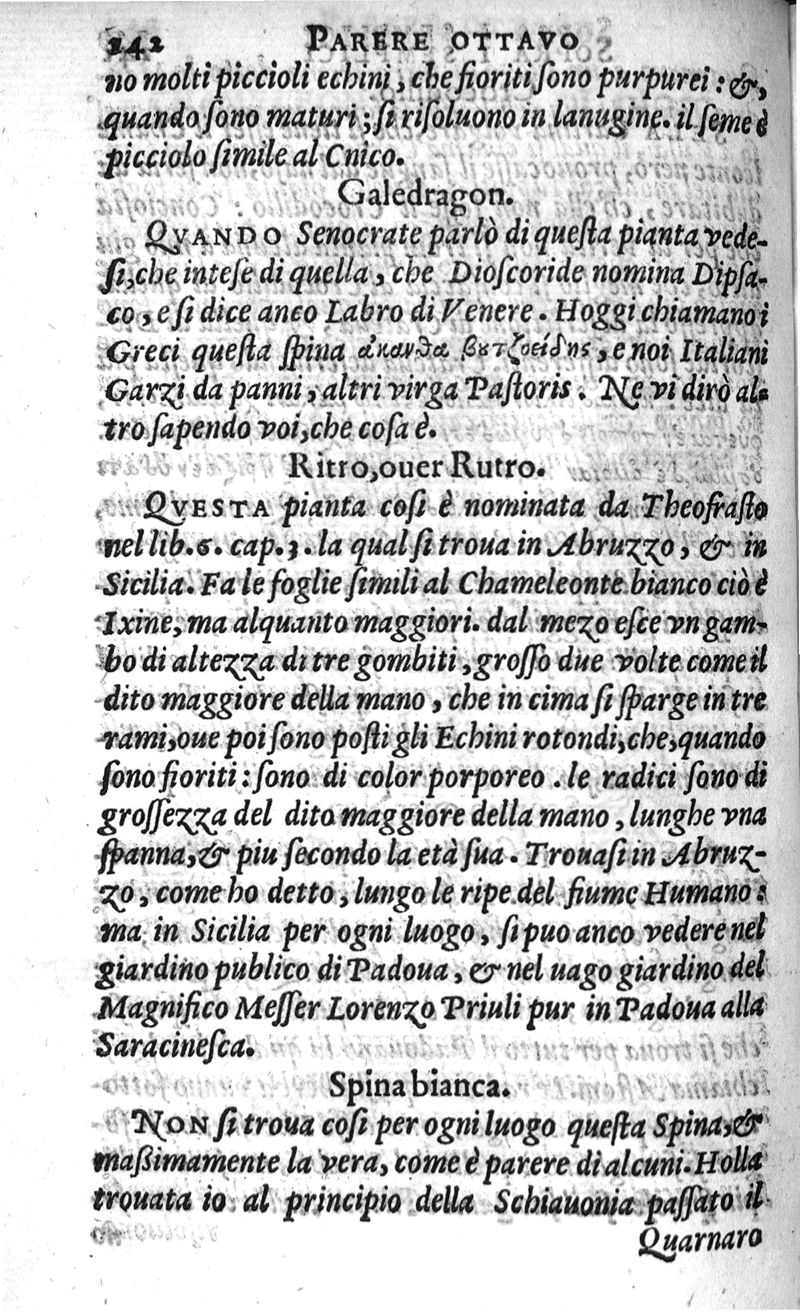 242 PARERE OTTAVO
no molti piccioli echini, che fioriti ſono purpurei : &,
quando ſono maturi ; ſi riſoluono in lanugine. il ſeme è
picciolo ſimile al Cnico.
Galedragon.
QVANDO Senocrate parlò di queſta pianta vede-
ſi, che inteſe di quella, che Dioſcoride nomina Dipſa-
co, e ſi dice anco Labro di Venere. Hoggi chiamano i
Greci queſta ſpina ἀκανθα βυτζοείδης, e noi Italiani
Garzi da panni, altri virga Paſtoris. Ne vi dirò al-
tro ſapendo voi, che coſa è.
Ritro, ouer Rutro.
QVESTA pianta coſi è nominata da Theofraſto
nel lib. 6. cap. 3. la qual ſi troua in Abruzzo, & in
Sicilia. Fa le foglie ſimili al Chameleonte bianco ciò è
Ixine, ma alquanto maggiori. dal mezo eſce vn gam-
bo di altezza di tre gombiti, groſſo due volte come il
dito maggiore della mano, che in cima ſi ſparge in tre
rami, oue poi ſono poſti gli Echini rotondi, che, quando
ſono fioriti : ſono di color porporeo. le radici ſono di
groſſezza del dito maggiore della mano, lunghe vna
ſpanna, & piu ſecondo la età ſua. Trouaſi in Abruz-
zo, come ho detto, lungo le ripe del fiume Humano :
ma in Sicilia per ogni luogo, ſi puo anco vedere nel
giardino publico di Padoua, & nel uago giardino del
Magnifico Meſſer Lorenzo Priuli pur in Padoua alla
Saracineſca.
Spina bianca.
NON ſi troua coſi per ogni luogo queſta Spina, &
maßimamente la vera, come è parere di alcuni. Holla
trouata io al principio della Schiauonia paſſato il
Quarnaro